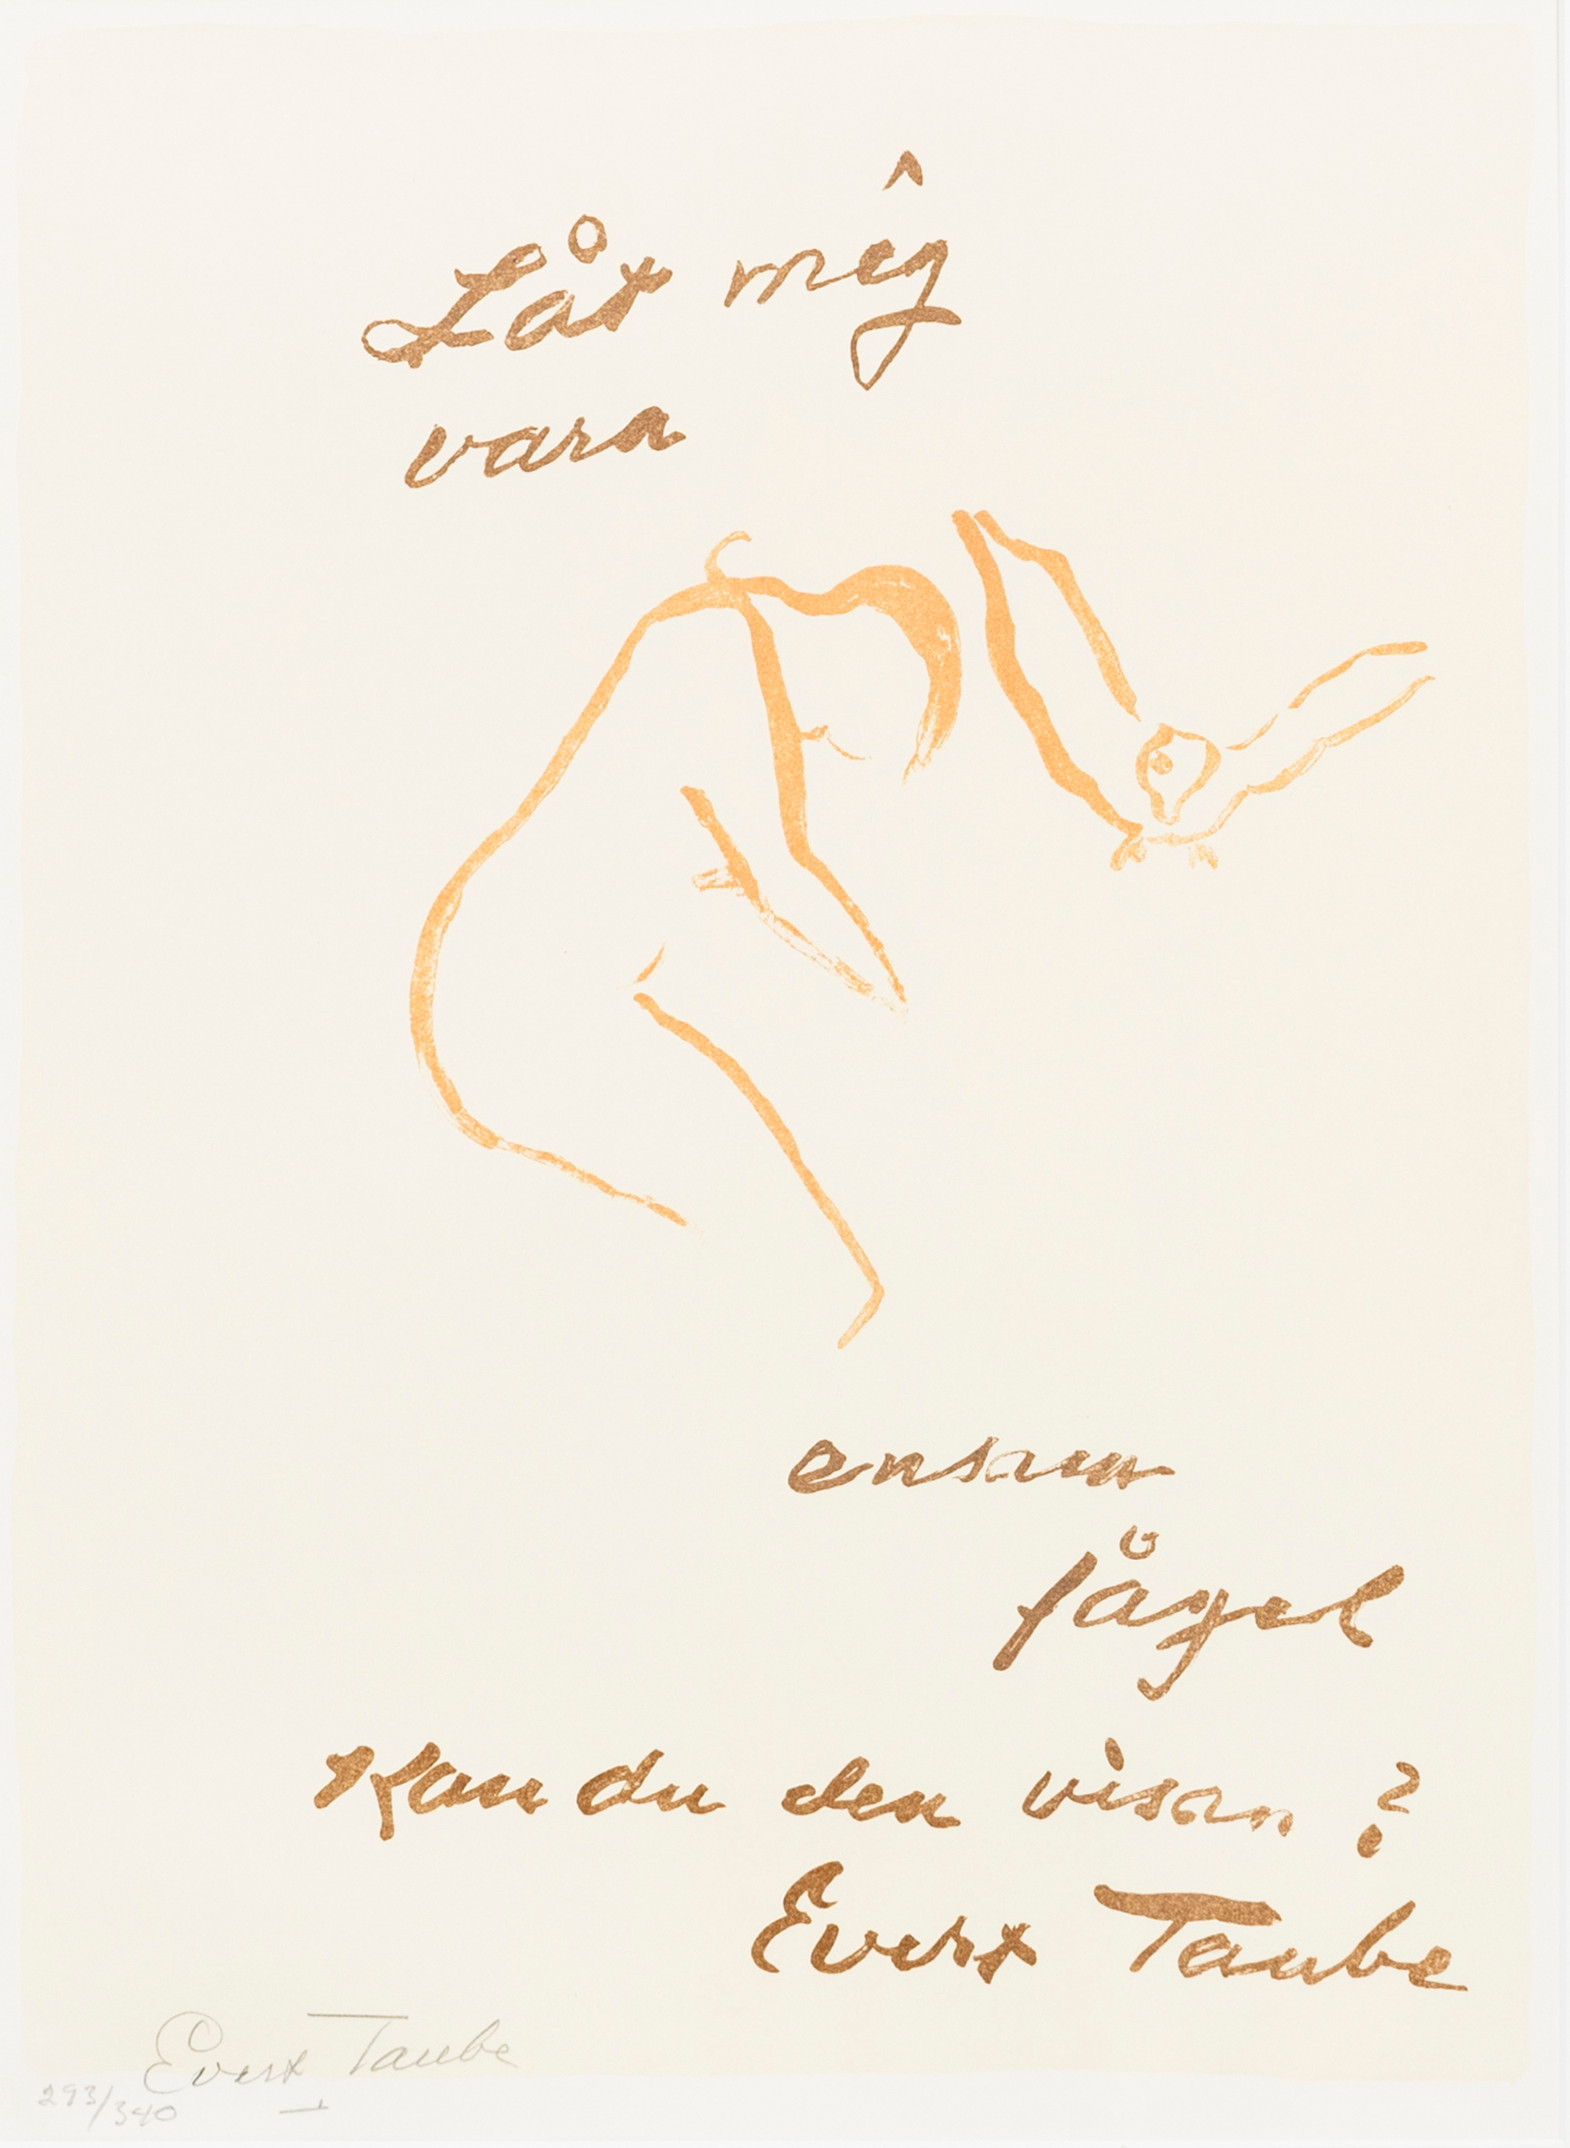 Låt mêg
vara
ensam
fågel
Kan du den visan?
Evert Taube
Evert Taube
293/340